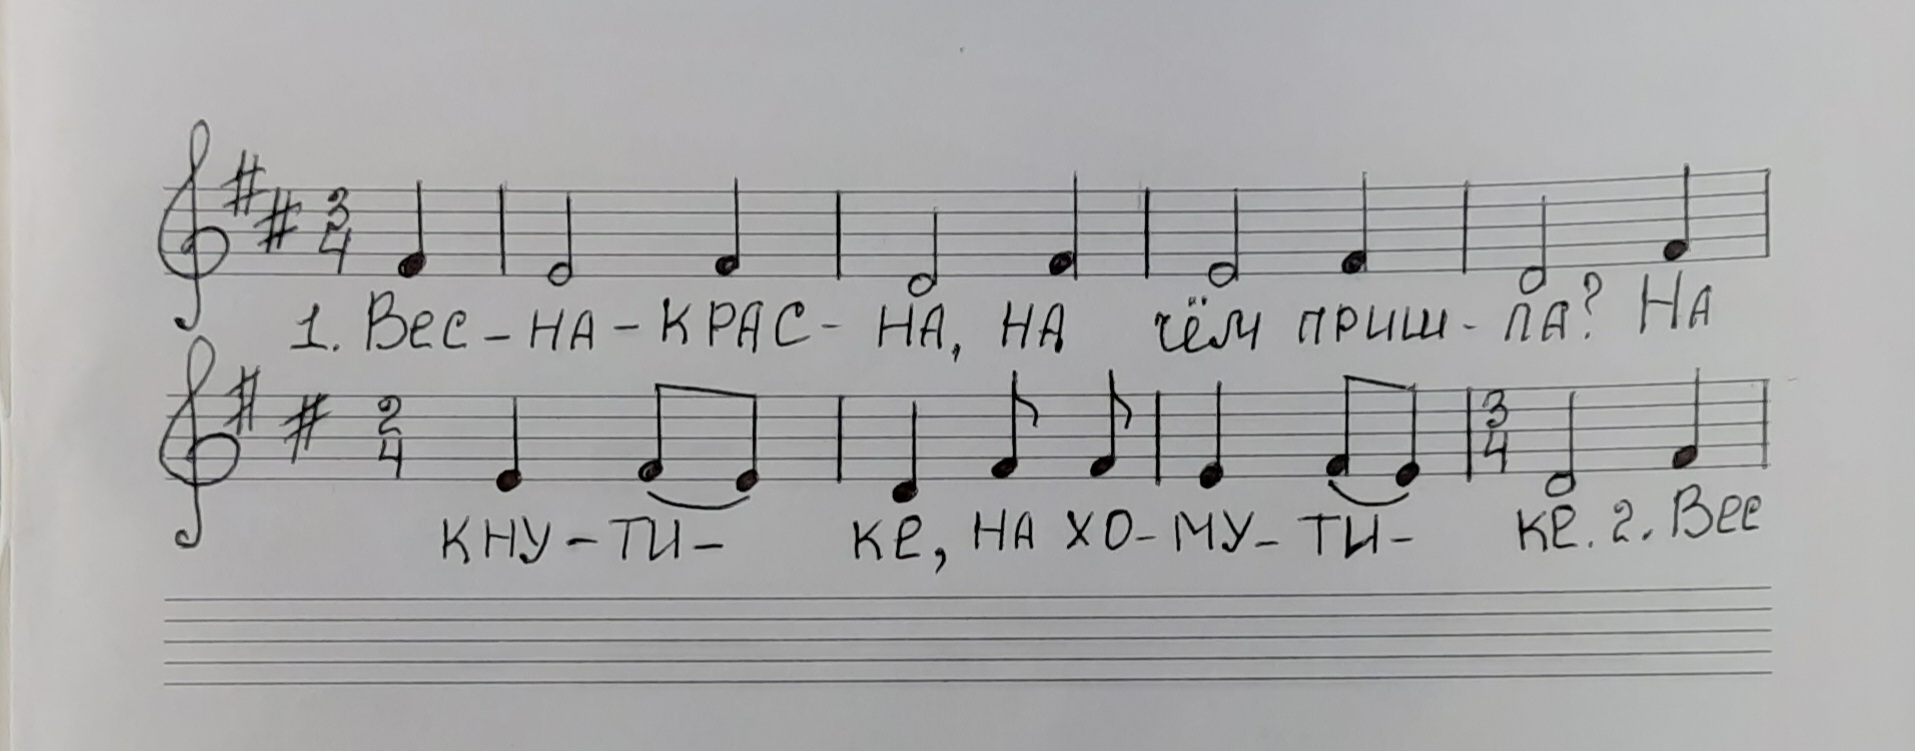 3 4
1. Вес - на - крас - на, на чём приш - ла? На
2 4 3 4
кну - ти - ке, на хо - му - ти - ке. 2. Вес